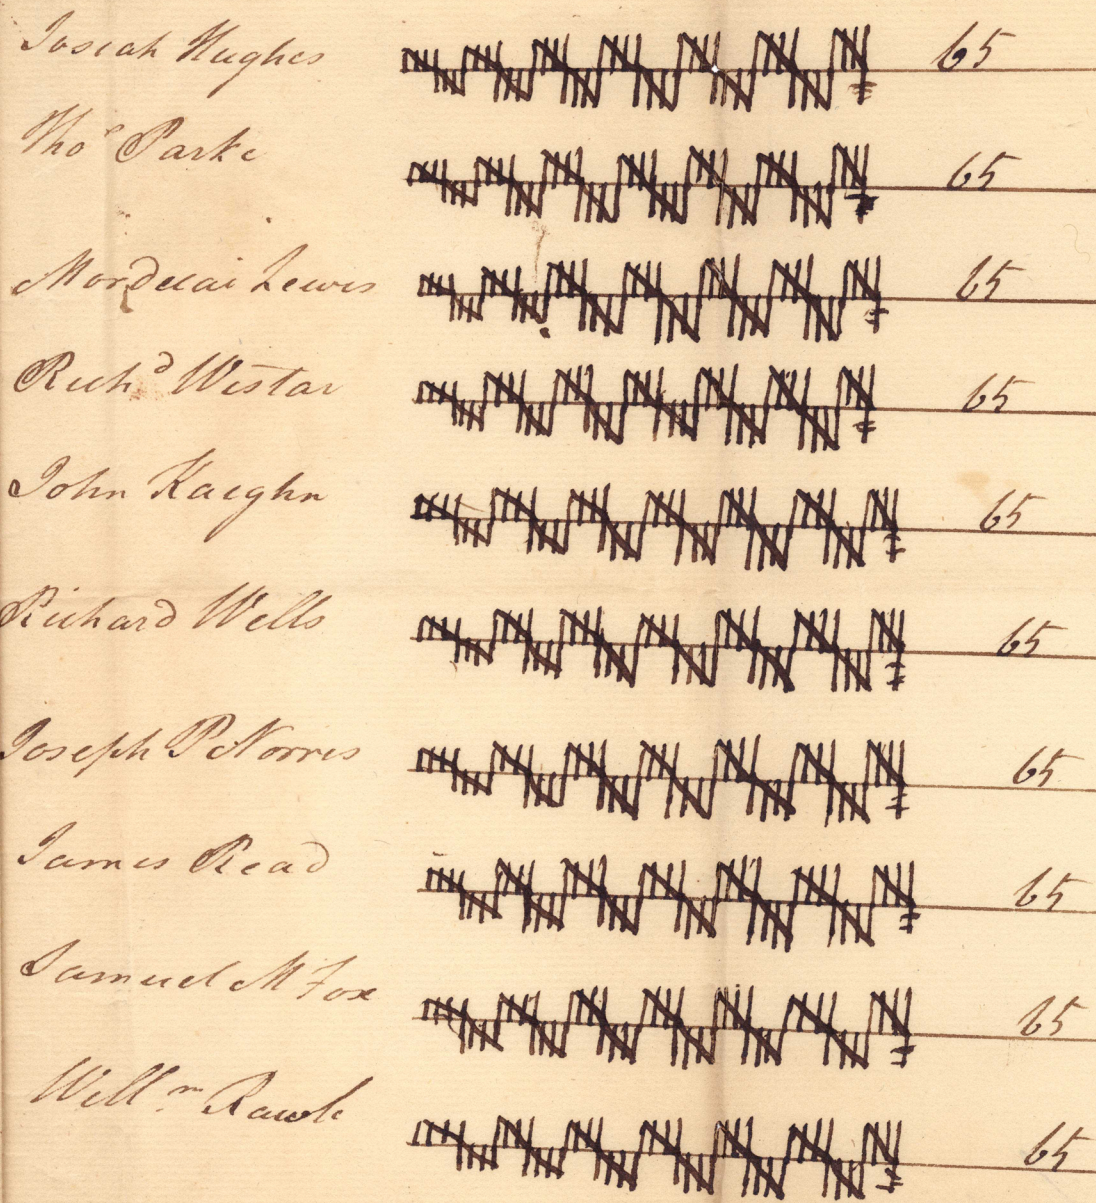 Josiah Hughes 65
Thoˢ Parke 65
Mordecai Lewis 65
Richᵈ Wistar 65
John Kaighn 65
Richard Wells 65
Joseph P Norris 65
James Read 65
Samuel M Fox 65
Willᵐ Rawle 65